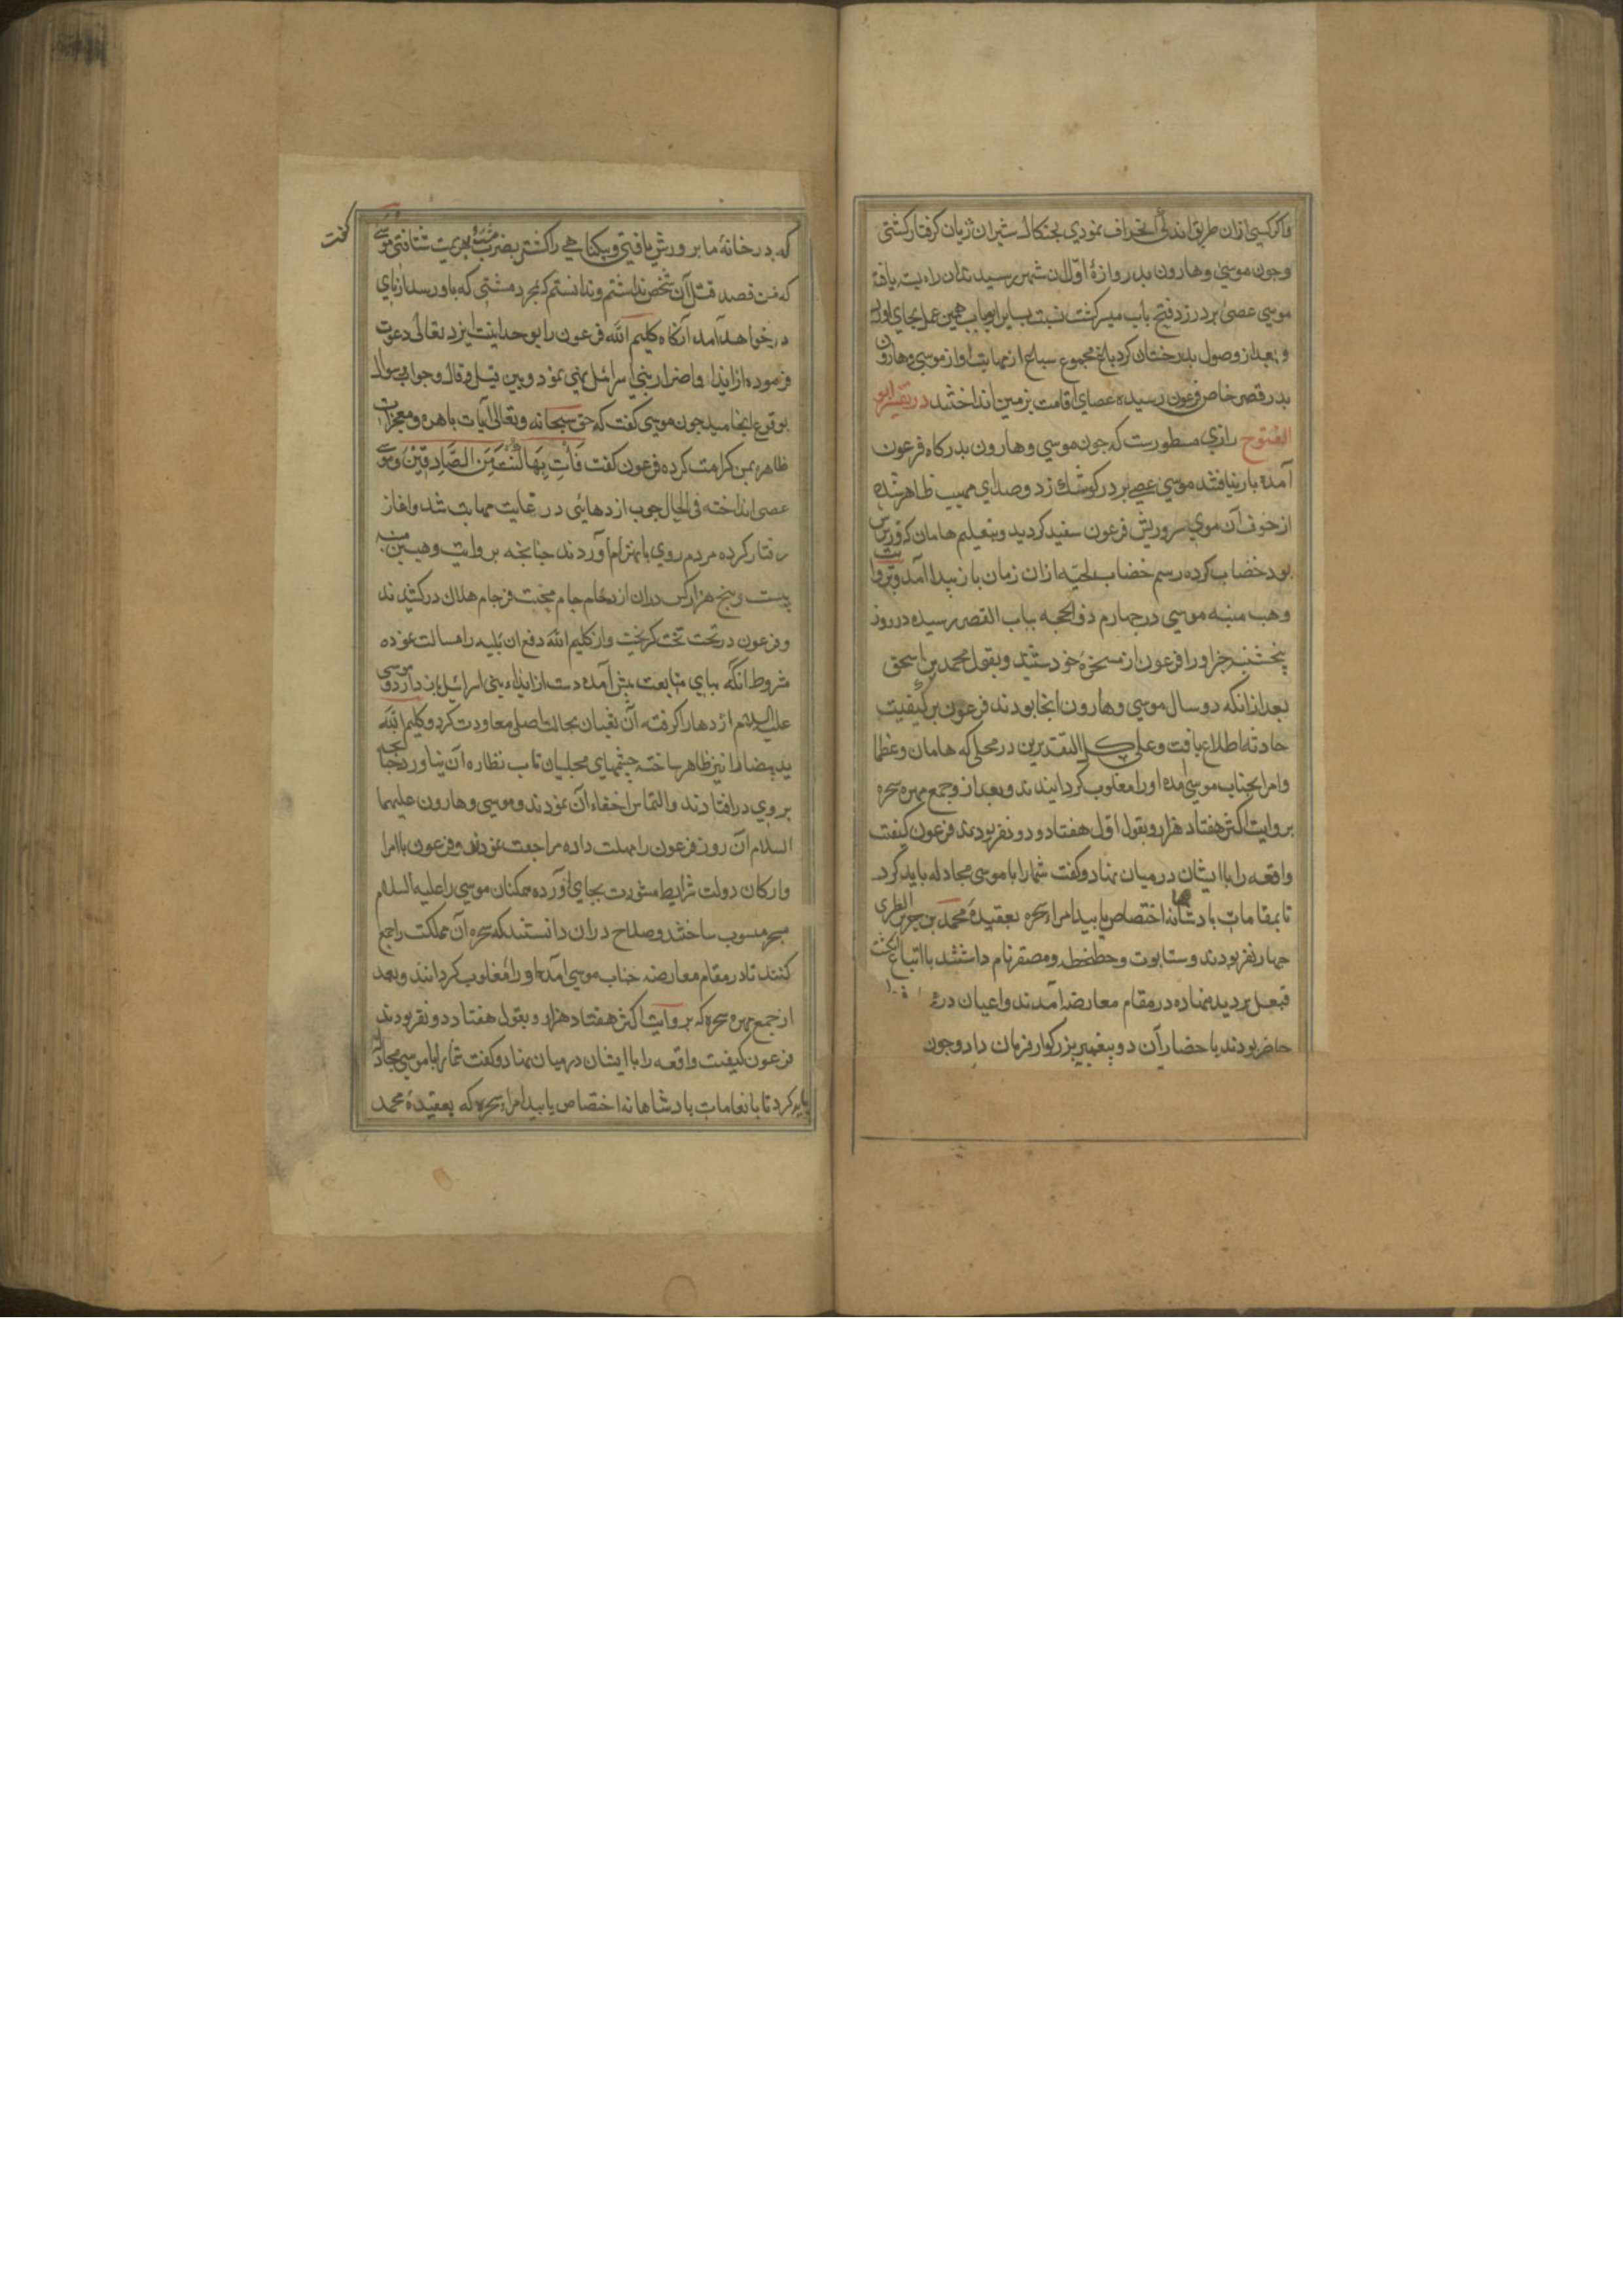 واکر کسی ازان طریق اندکی انحراف نمودی بجنکال شیران ژیان کرفتار کشتی
وجون موسی وهارون بدروازهٔ اول ان شهر رسیدند ان راه بت یافه
موسی عصی بر در زد فتح باب میسر کشت نسبت بسایر ابواب همین عمل بجای اورد
و بعد از وصول بدرختان کرد باغ مجموع سباع از مهابت اواز موسی وهارون
بدر قصر خاص فرعون رسیده عصای اقامت بزمین انداختند در تفسیر ابو
الفتوح رازی مسطورست که جون موسی وهارون بدرکاه فرعون
آمده بار نیافتند موسی عصی بر در کوشک زد وصدای مهیب ظاهر شده
از خوف آن موی سر وریش فرعون سفید کردید وبتعلیم هامان که وزیرش
بود خضاب کرده رسم خضاب لحیه ازان زمان باز پیدا آمد وبروایت
وهب منبه موسی در جهارم ذو الحجه بباب القصر رسیده در روز
پنجشنبه خبر اورا فرعون از مسخرهٔ خود شنید وبقول محمد بن اسحق
بعد از انکه دو سال موسی وهارون انجا بودند فرعون بر کیفیت
حادثه اطلاع یافت وعلی کل التقدیرین در محلی که هامان وعظما
وامرا بجناب موسی آمده اورا مغلوب کردانیدند وبعد از وجمع مهره سحره
بروایت اکثر هفتاد هزار وبقول اقل هفتاد ودو نفر بودند فرعون کیفیت
واقعه را باایشان در میان نهاد وکفت شمارا با موسی مجادله باید کرد
تا بمقامات بادشاهانه اختصاص یابید امراء سحره بعقیدهٔ محمد بن جریر الطبری
جهار نفر بودند وستابوت وحطحط ومصفر نام داشتند بااتباع
در مقام معارضه آمدند واعیان در
حاضر بودند باحضار آن دو پیغمبر بزرکوار فرمان داد وجون
که در خانهٔ ما پرورش یافتی وبیکناهی را کشتی بضرب مشت بهزیمت شتافتی موسی
کفت
که من قصد قتل آن شخص نداشتم وندانستم که بمجرد مشتی که باو رسد از پای
در خواهد آمد آنکاه کلیم الله فرعون را بوحدانیت ایزد تعالی دعوت
فرموده از ایذا واضرار بنی اسرائیل نهی نمود وبین قیل وقال وجواب وسوال
بوقوع انجامید جون موسی کفت که حق سبحانه وتعالی آیات باهره ومعجزات
ظاهره بمن کرامت کرده فرعون کفت فَأْتِ بِهَا إِنْ كُنْتَ مِنَ الصَّادِقِينَ وموسی
عصی انداخته فی الحال جوب ازدهائی در غایت مهابت شد واغاز
رفتار کرده مردم روی بانهزام آوردند جنانجه بروایت وهب بن منبه
بیست وپنج هزار کس دران ازدحام جام محنت فرجام هلاک درکشیدند
وفرعون در تحت تخت کریخت واز کلیم الله دفع ان بلیه را مسالت نموده
مشروط انکه بپای متابعت پیش آمده دست از ایذاء بنی اسرائیل باز دارد وموسی
علیه السلام اژدها را کرفته آن ثعبان بحالت اصلی معاودت کرد وکلیم الله
ید بیضا را نیز ظاهر ساخته چشمهای مجلسیان تاب نظاره آن نیاورد
بروی در افتادند والتماس اخفاء آن نمودند وموسی وهارون علیهما
السلام آن روز فرعون را مهلت داده مراجعت نمودند وفرعون باامرا
وارکان دولت شرایط مشورت بجای آورده ممکنان موسی را علیه السلام
بسحر منسوب ساختند وصلاح دران دانستند که سحره آن مملکت را جمع
کنند تا در مقام معارضه جناب موسی آمده اورا مغلوب کردانند وبعد
از جمع مهره سحره که بروایت اکثر هفتاد هزار وبقول هفتاد دو نفر بودند
فرعون کیفیت واقعه را باایشان در میان نهاد وکفت شمارا با موسی مجادله
باید کرد تا بانعامات بادشاهانه اختصاص یابید امراء سحره که بعقیدهٔ محمد